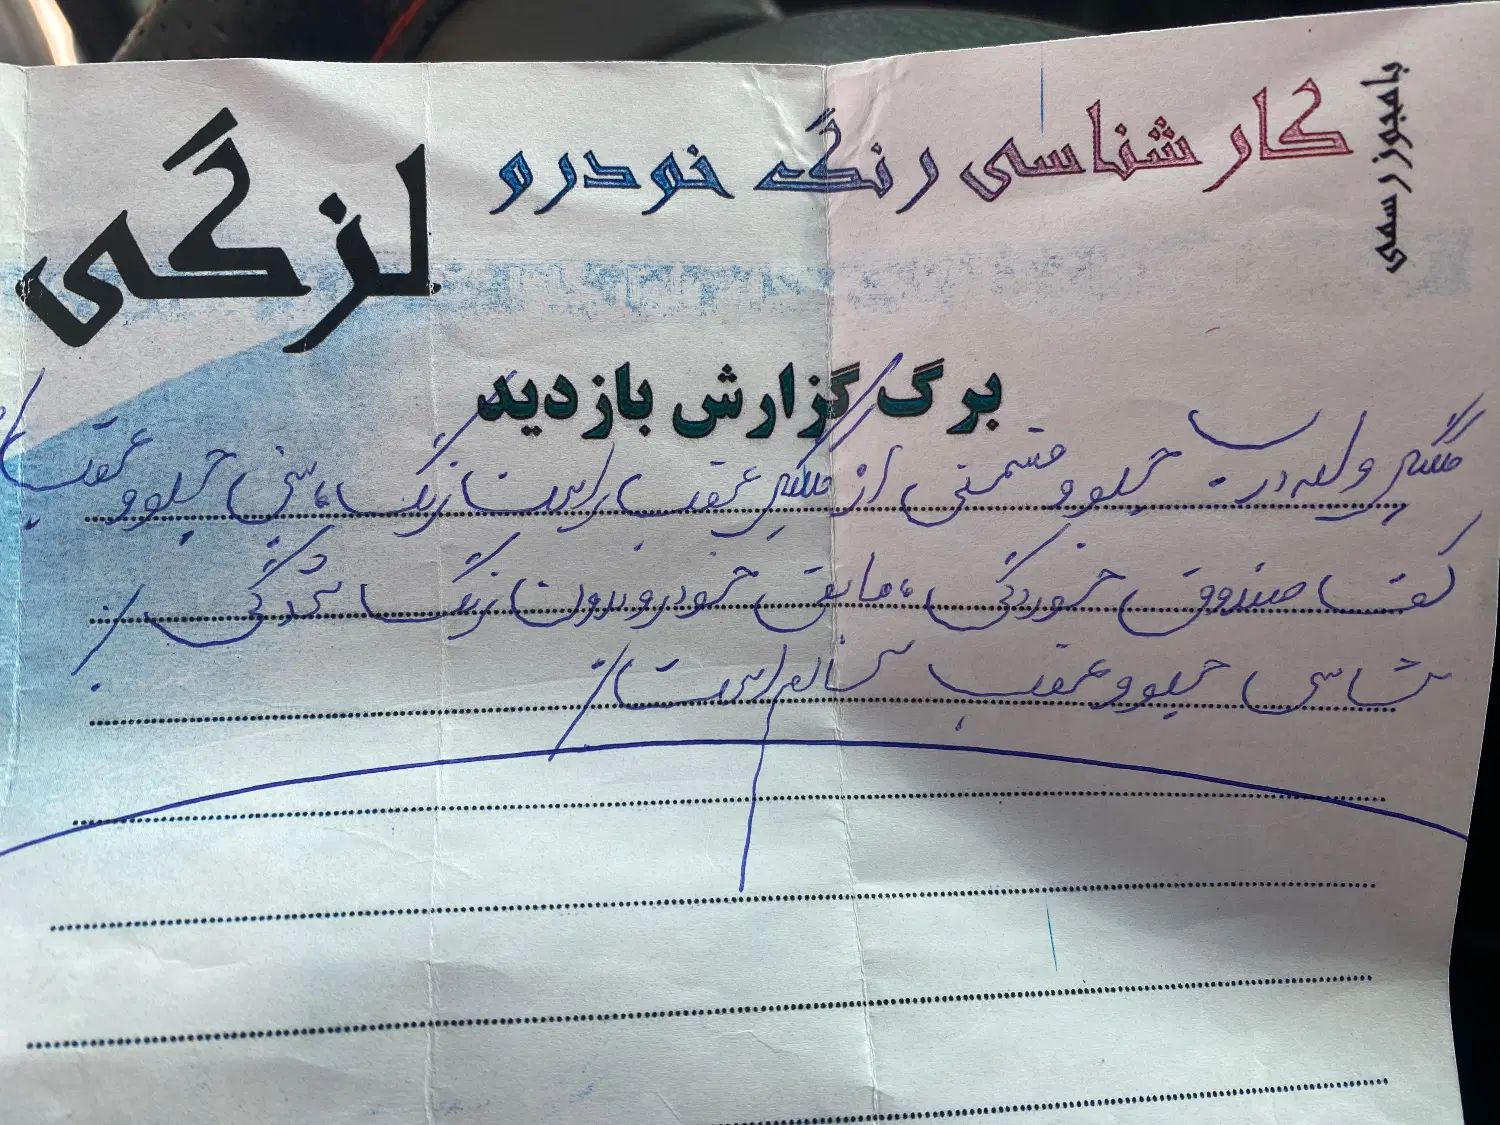 کارشناسی رنگ خودرو
با مجوز رسمی
لزگی
برگ گزارش بازدید
گلگیر و لبه درب جلو و قسمتی از گلگیر عقب راست رنگ، سینی جلو و عقب
کف صندوق خوردگی، مابقی خودرو بدون رنگ شدگی
شاسی جلو و عقب سالم است